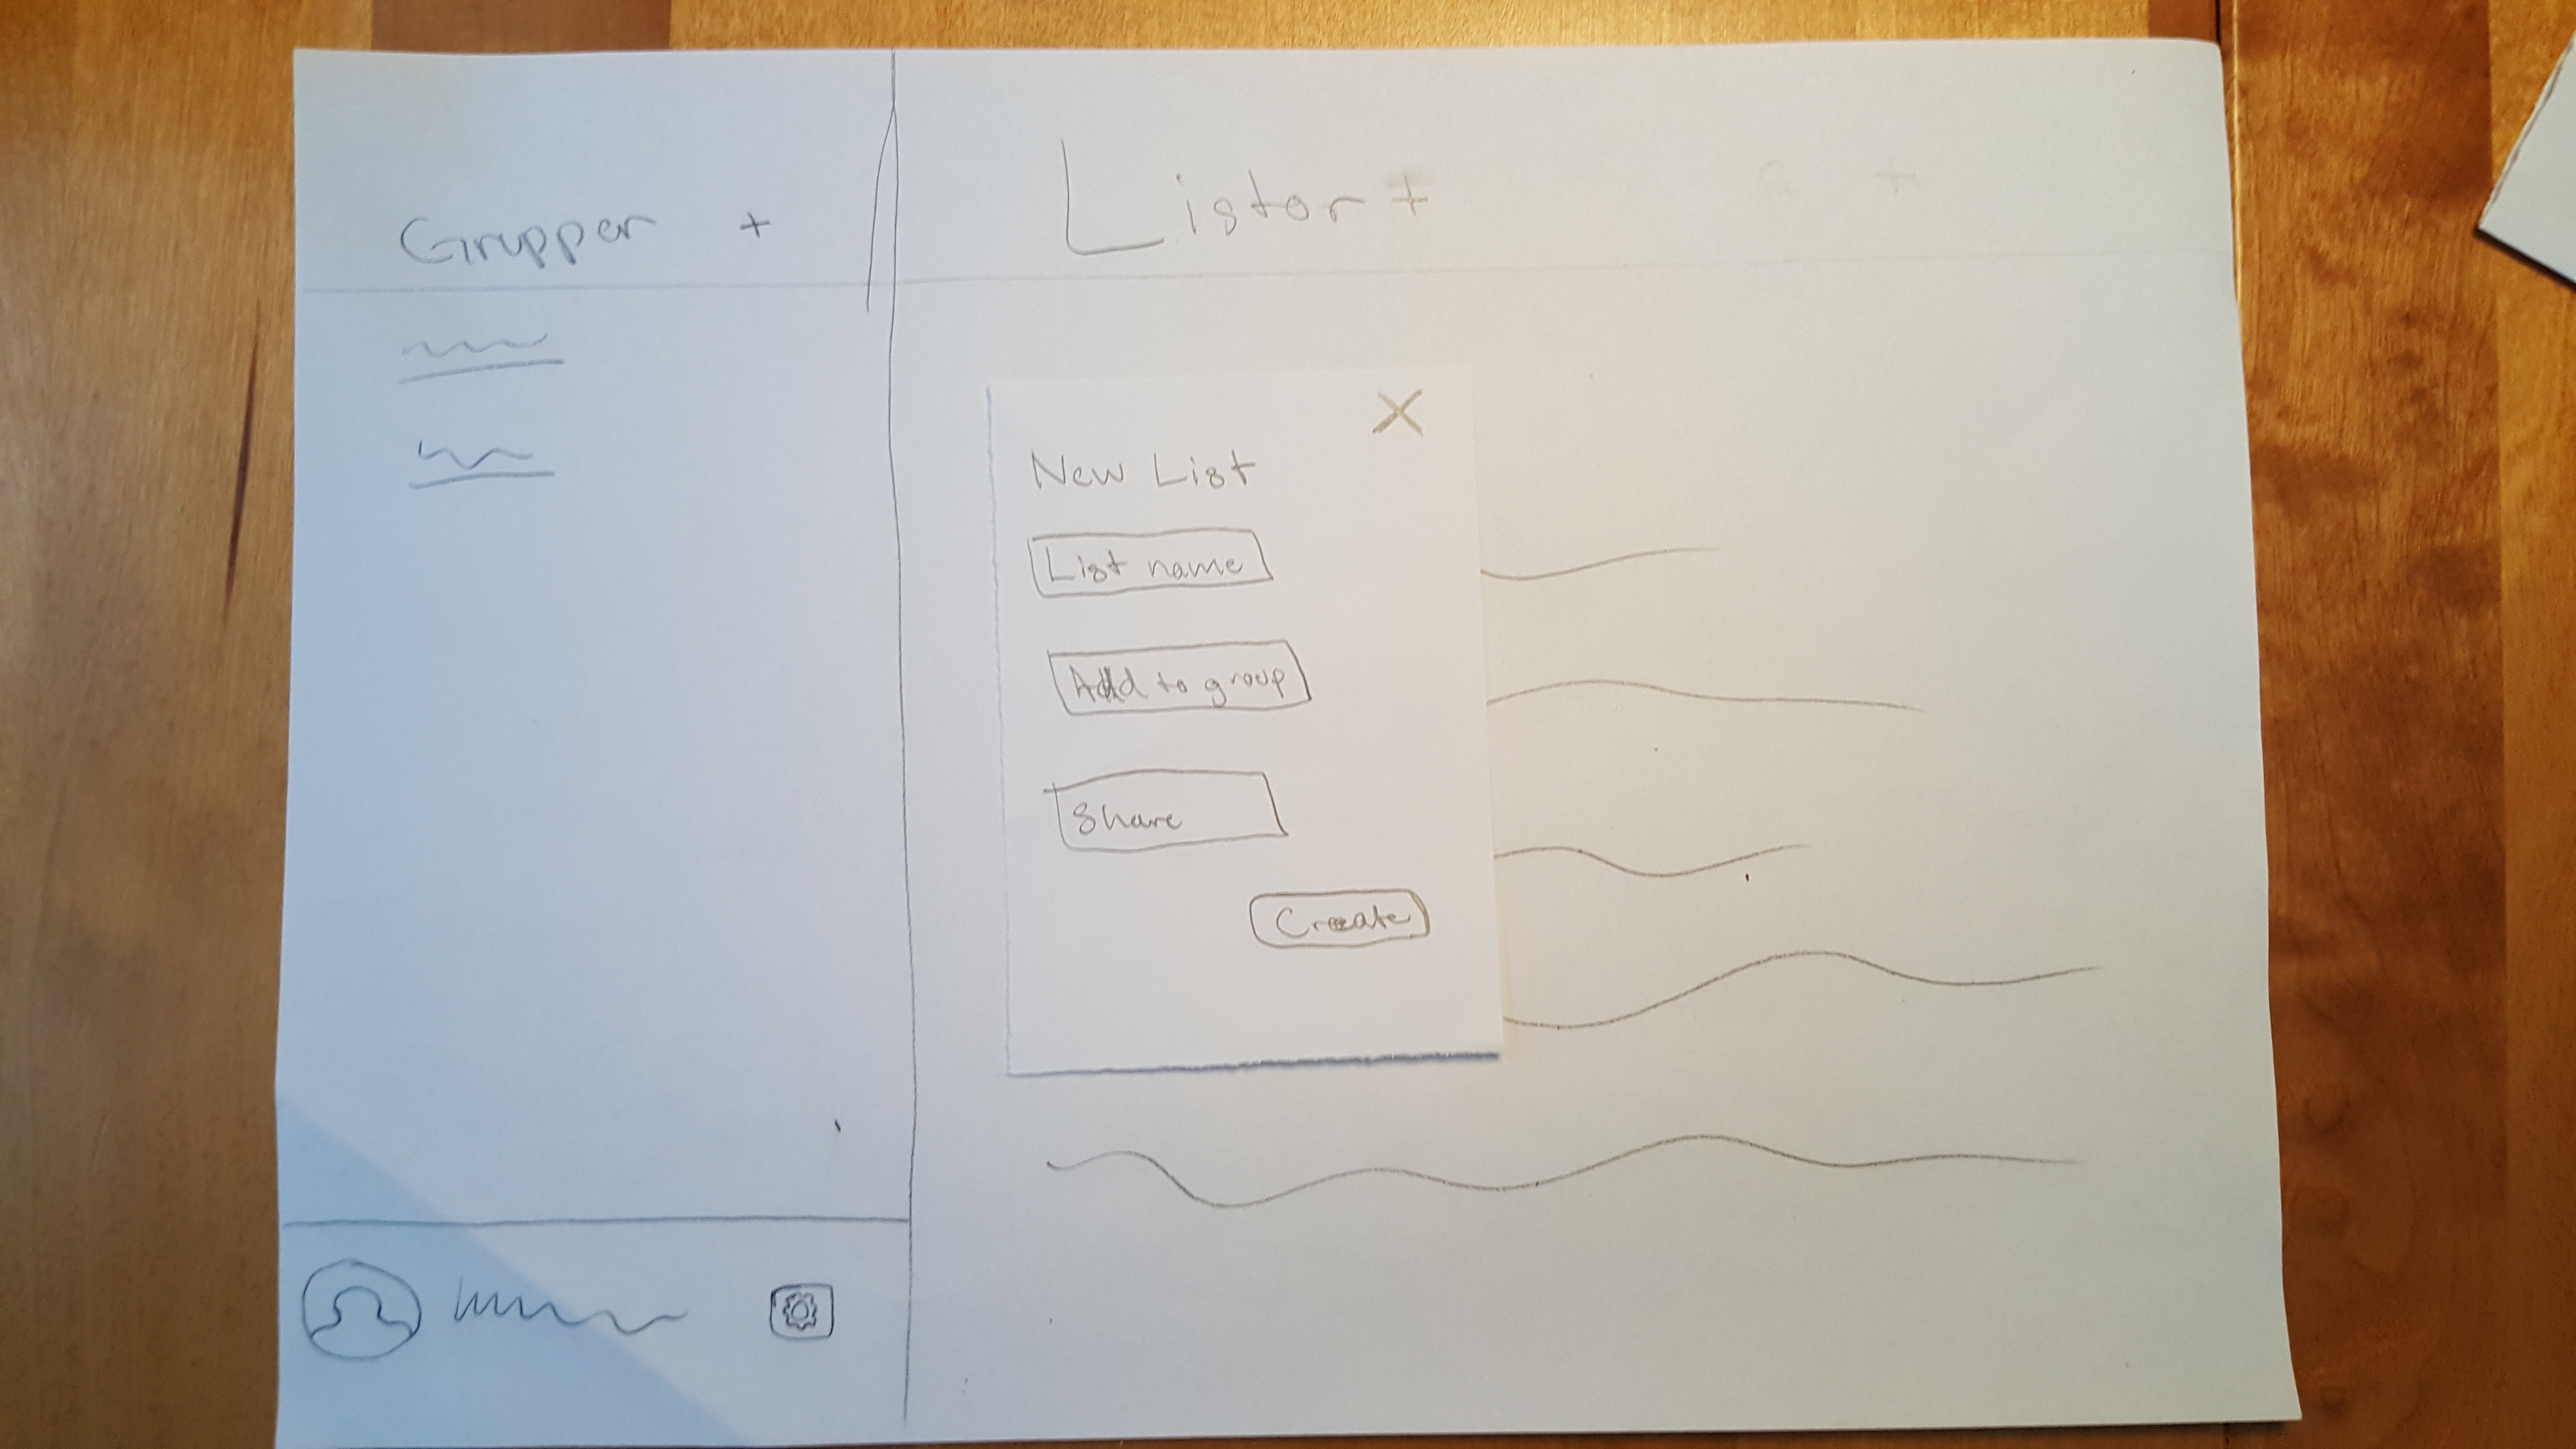 Grupper +
Listor +
New List X
List name
Add to group
Share
Create